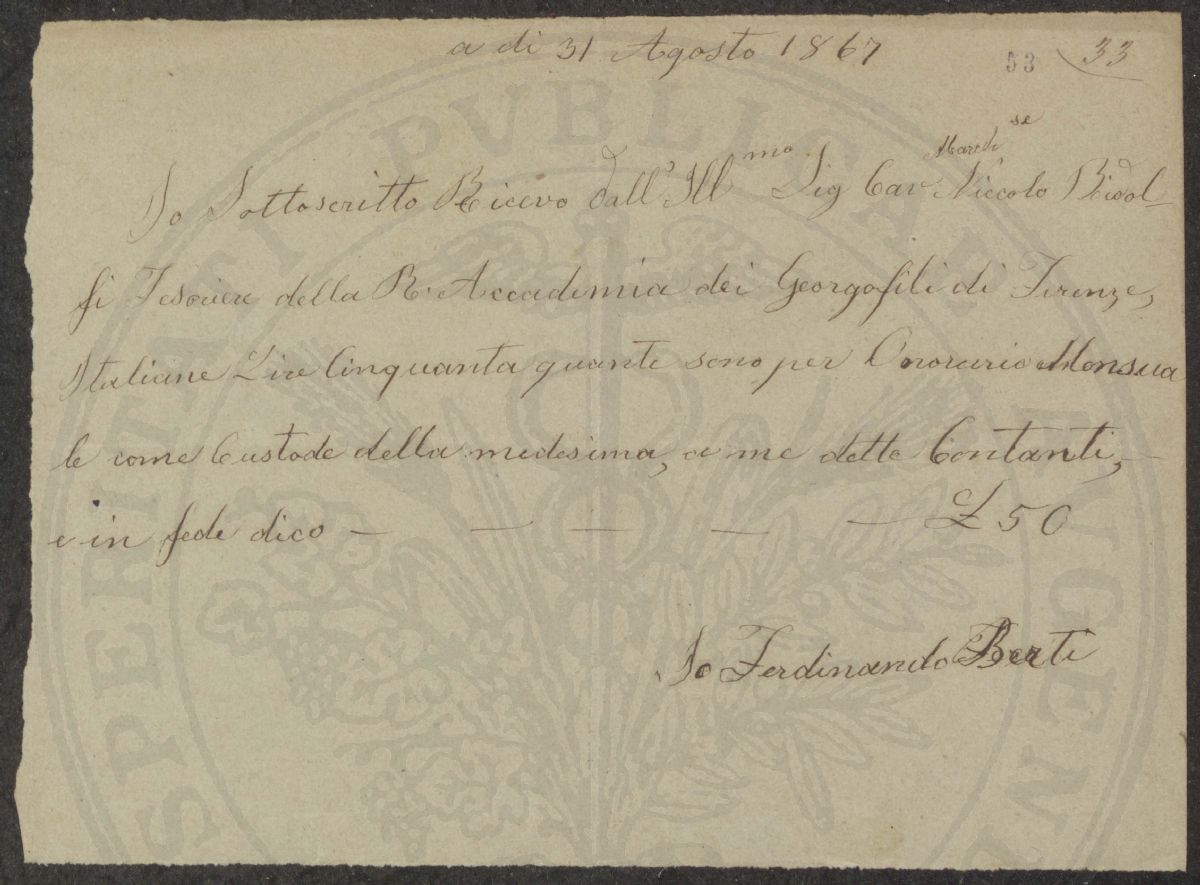 a di 31 Agosto 1867
53 33
Io Sottoscritto Ricevo dall' Ill.mo Sig Cav Marchse Niccolo Ridol-
fi Tesoriere della R. Accademia dei Georgofili di Firenze,
Italiane Lire Cinquanta quante sono per Onorario Mensua
le come Custode della medesima, a me dette Contanti,
e in fede dico — — — — — £ 50
Io Ferdinando Berti
PROSPERITATI PVBLICAE AVGENDAE